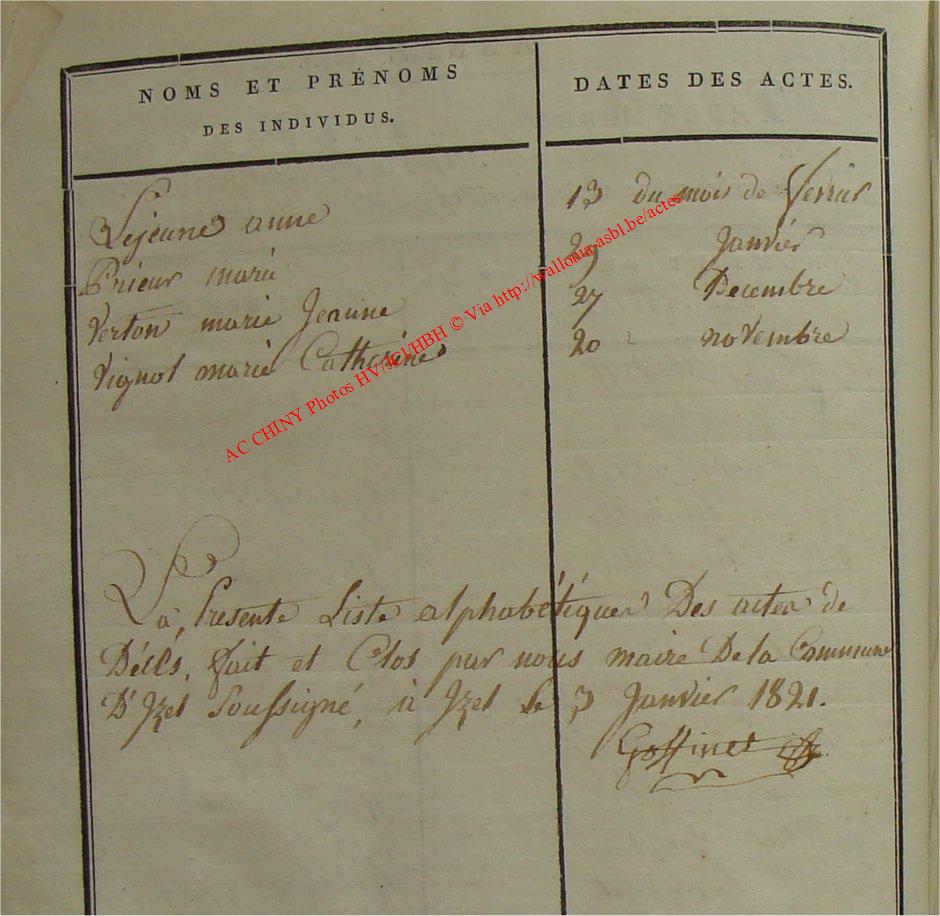 NOMS ET PRÉNOMS
DES INDIVIDUS.
DATES DES ACTES.
Lejeune anne 13 du mois de fevrier
Prieur marie 29 Janvier
Verton marie Jeanne 27 Decembre
Vignol marie Catherine 20 novembre
AC CHINY Photos HV/JCl/HBH © Via http://wallonia-asbl.be/actes
La Presente Liste alphabétique Des actes de
Décès, fait et Clos par nous maire De la Commune
D'Izel Soussigné, à Izel Le 3 Janvier 1821.
Goffinet